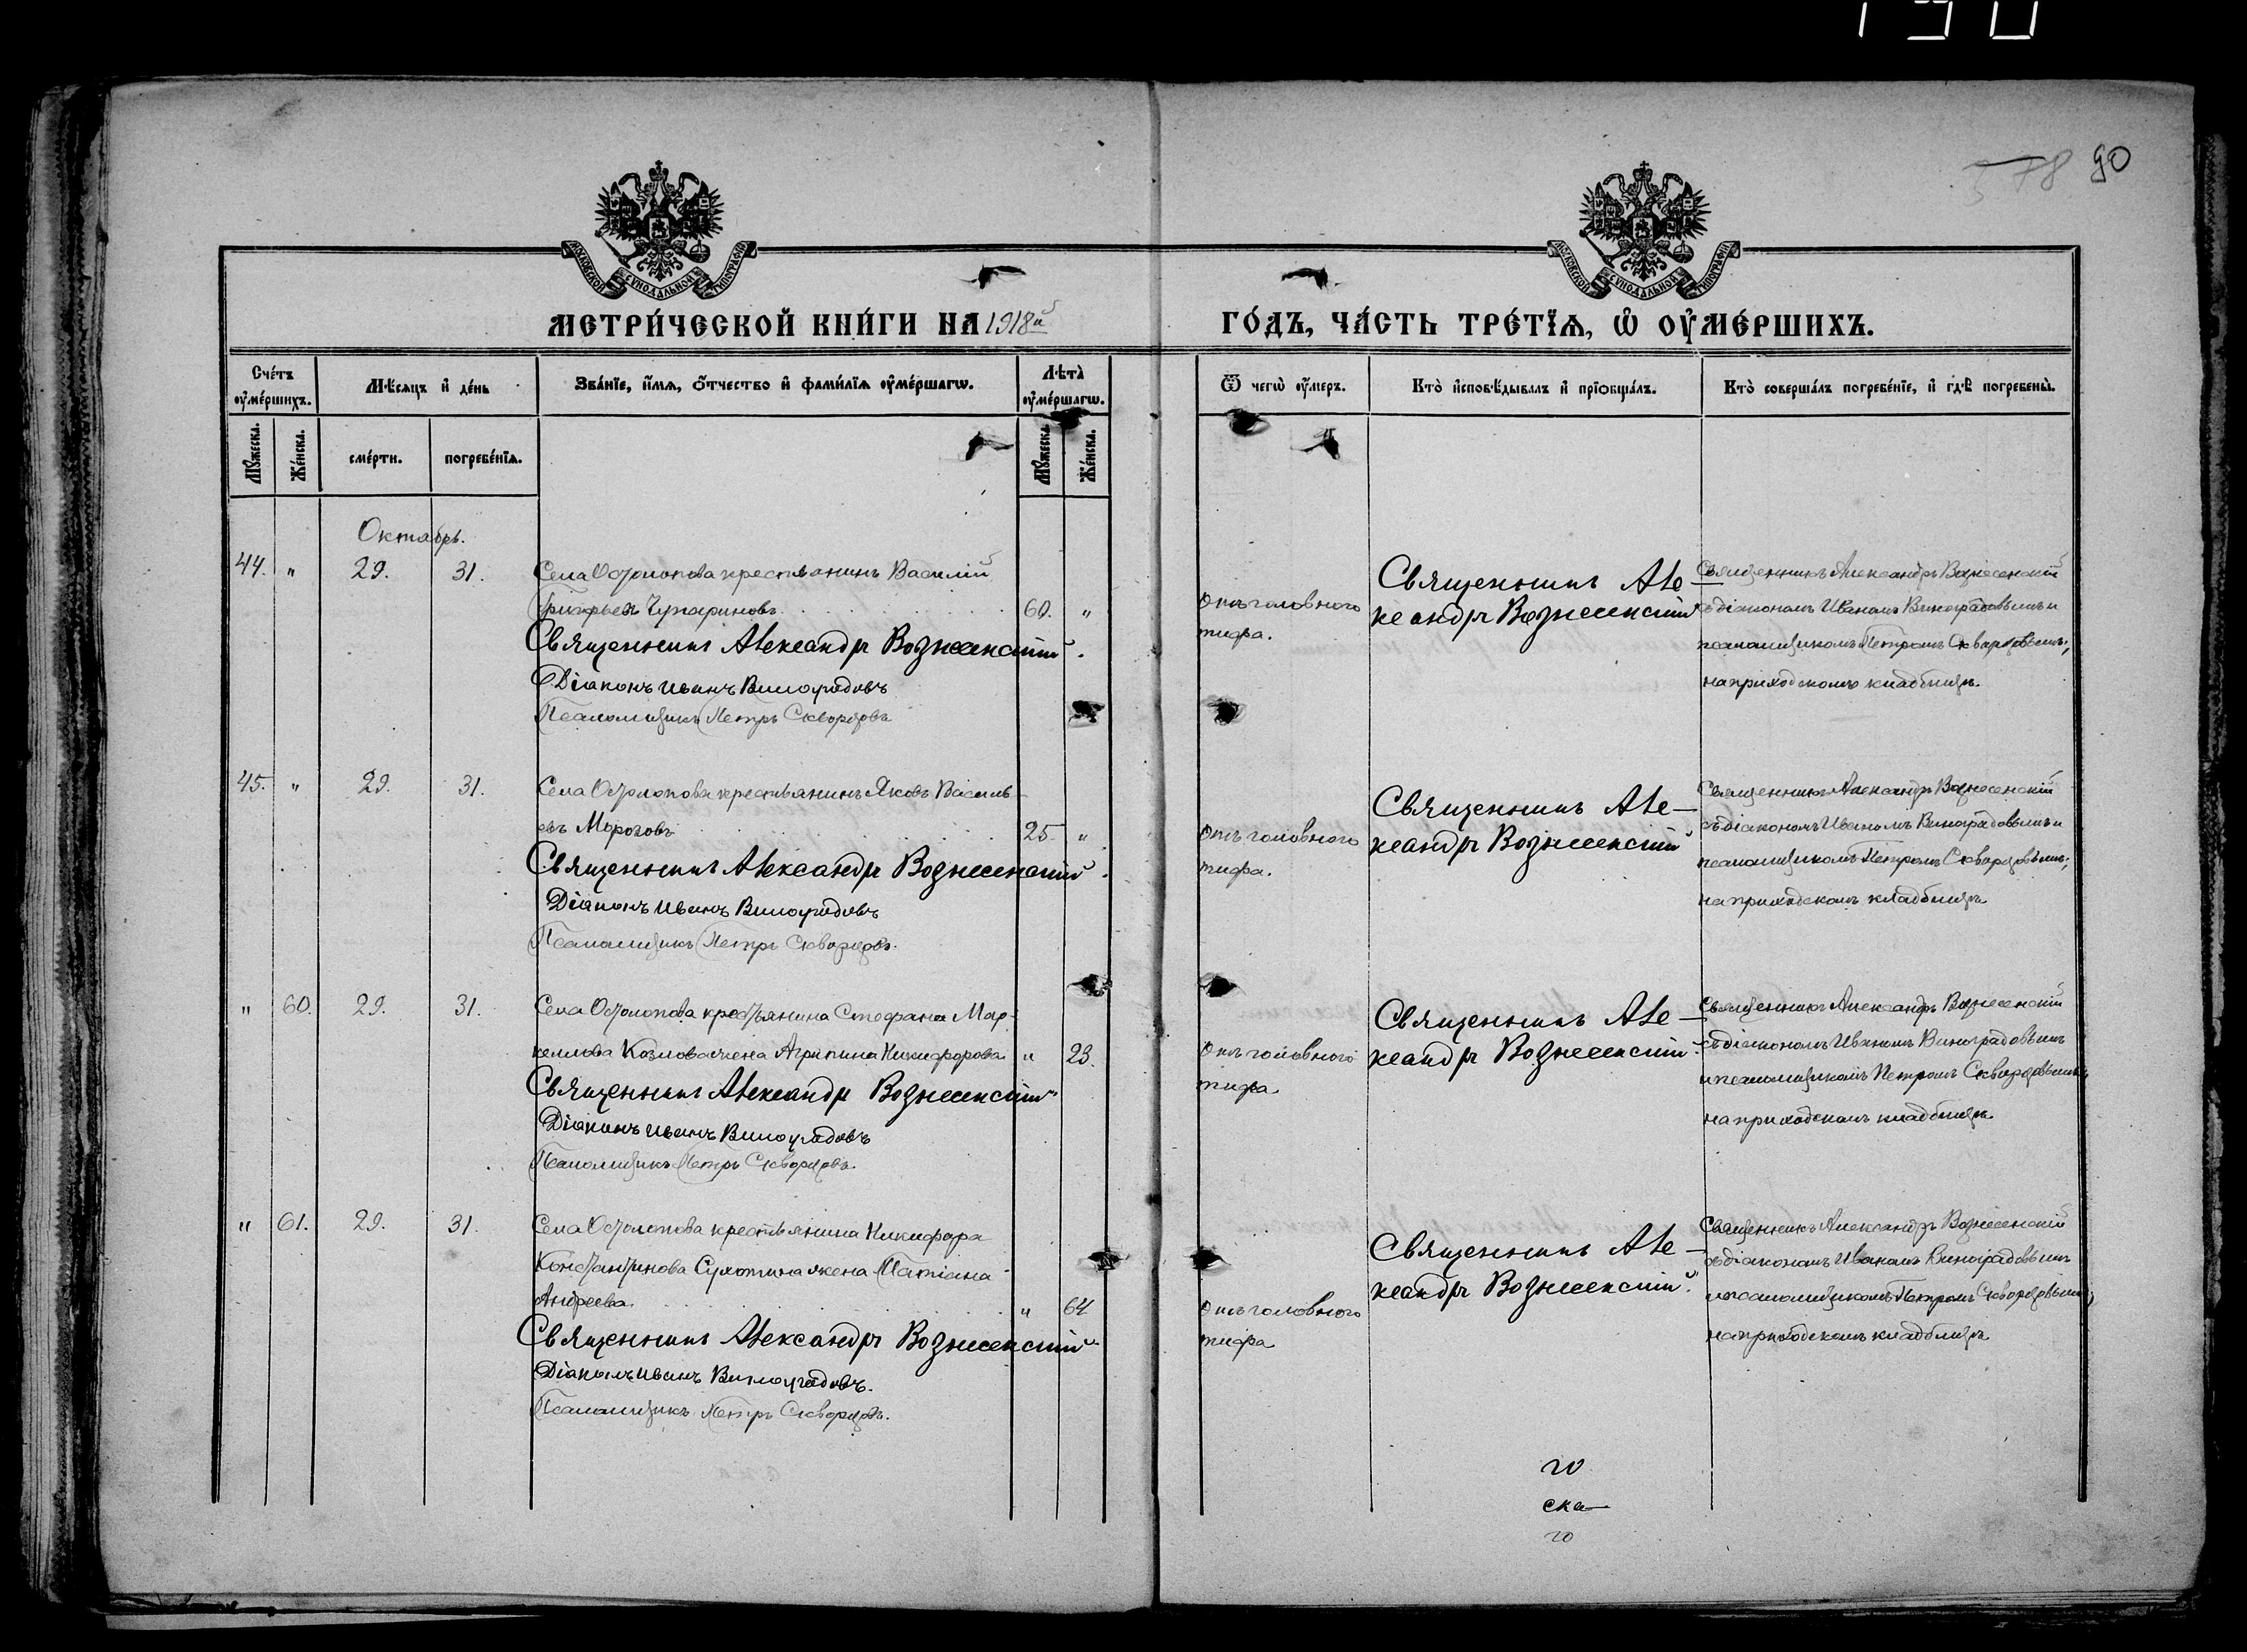 190
578 90
МОСКОВСКОЙ СѴНОДАЛЬНОЙ ТИПОГРАФІИ
МОСКОВСКОЙ СѴНОДАЛЬНОЙ ТИПОГРАФІИ
МЕТРИ́ЧЕСКОЙ КНИ́ГИ НА 1918й
ГО́ДЪ, ЧА́СТЬ ТРЕ́ТЇѦ, Ѽ ОУ҆МЕ́РШИХЪ.
Сче́тъ оу҆ме́ршихъ.
Мѣ́сяцъ и҆ де́нь
Зва́нїе, и҆́мѧ, ѻ҆́тчество и҆ фами́лїѧ оу҆ме́ршагѡ.
Лѣта̀ оу҆ме́ршагѡ.
Ѿ чегѡ̀ оу҆́меръ.
Кто̀ и҆сповѣ́дывалъ и҆ прїѻбща́лъ.
Кто̀ соверша́лъ погребе́нїе, и҆ гдѣ̀ погребены̀.
Мꙋ́жеска.
Же́нска.
сме́рти.
погребе́нїѧ.
Мꙋ́жеска.
Же́нска.
Октябрь.
44. " 29. 31. Села Остолопова крестьянинъ Василій
Григорьевъ 60. "
Священникъ Александръ Вознесенскій.
Діаконъ Иванъ Виноградовъ
Псаломщикъ Петръ Скворцовъ
Отъ головного
тифа.
Священникъ Але-
ксандръ Вознесенскій
Священникъ Александръ Вознесенскій
съ діакономъ Иваномъ Виноградовымъ и
псаломщикомъ Петромъ Скворцовымъ,
на приходскомъ кладбищѣ.
45. " 29. 31. Села Остолопова крестьянинъ Яковъ Василь-
евъ Морозовъ 25. "
Священникъ Александръ Вознесенскій.
Діаконъ Иванъ Виноградовъ
Псаломщикъ Петръ Скворцовъ.
Отъ головного
тифа.
Священникъ Але-
ксандръ Вознесенскій
Священникъ Александръ Вознесенскій
съ діакономъ Иваномъ Виноградовымъ и
псаломщикомъ Петромъ Скворцовымъ,
на приходскомъ кладбищѣ
" 60. 29. 31. Села Остолопова крестьянина Стефана Мар-
келлова Козлова жена Агрипина Никифорова " 23.
Священникъ Александръ Вознесенскій
Діаконъ Иванъ Виноградовъ
Псаломщикъ Петръ Скворцовъ.
Отъ головного
тифа
Священникъ Але-
ксандръ Вознесенскій.
Священникъ Александръ Вознесенскій
съ діакономъ Иваномъ Виноградовымъ
и псаломщикомъ Петромъ Скворцовымъ,
на приходскомъ кладбищѣ.
" 61. 29. 31. Села Остолопова крестьянина Никифора
Константинова жена Матіана
Андреева " 64
Священникъ Александръ Вознесенскій
Діаконъ Иванъ Виноградовъ.
Псаломщикъ Петръ Скворцовъ.
Отъ головного
тифа
Священникъ Але-
ксандръ Вознесенскій.
Священникъ Александръ Вознесенскій
съ діакономъ Иваномъ Виноградовымъ
и псаломщикомъ Петромъ Скворцовымъ,
на приходскомъ кладбищѣ
го
ска
го